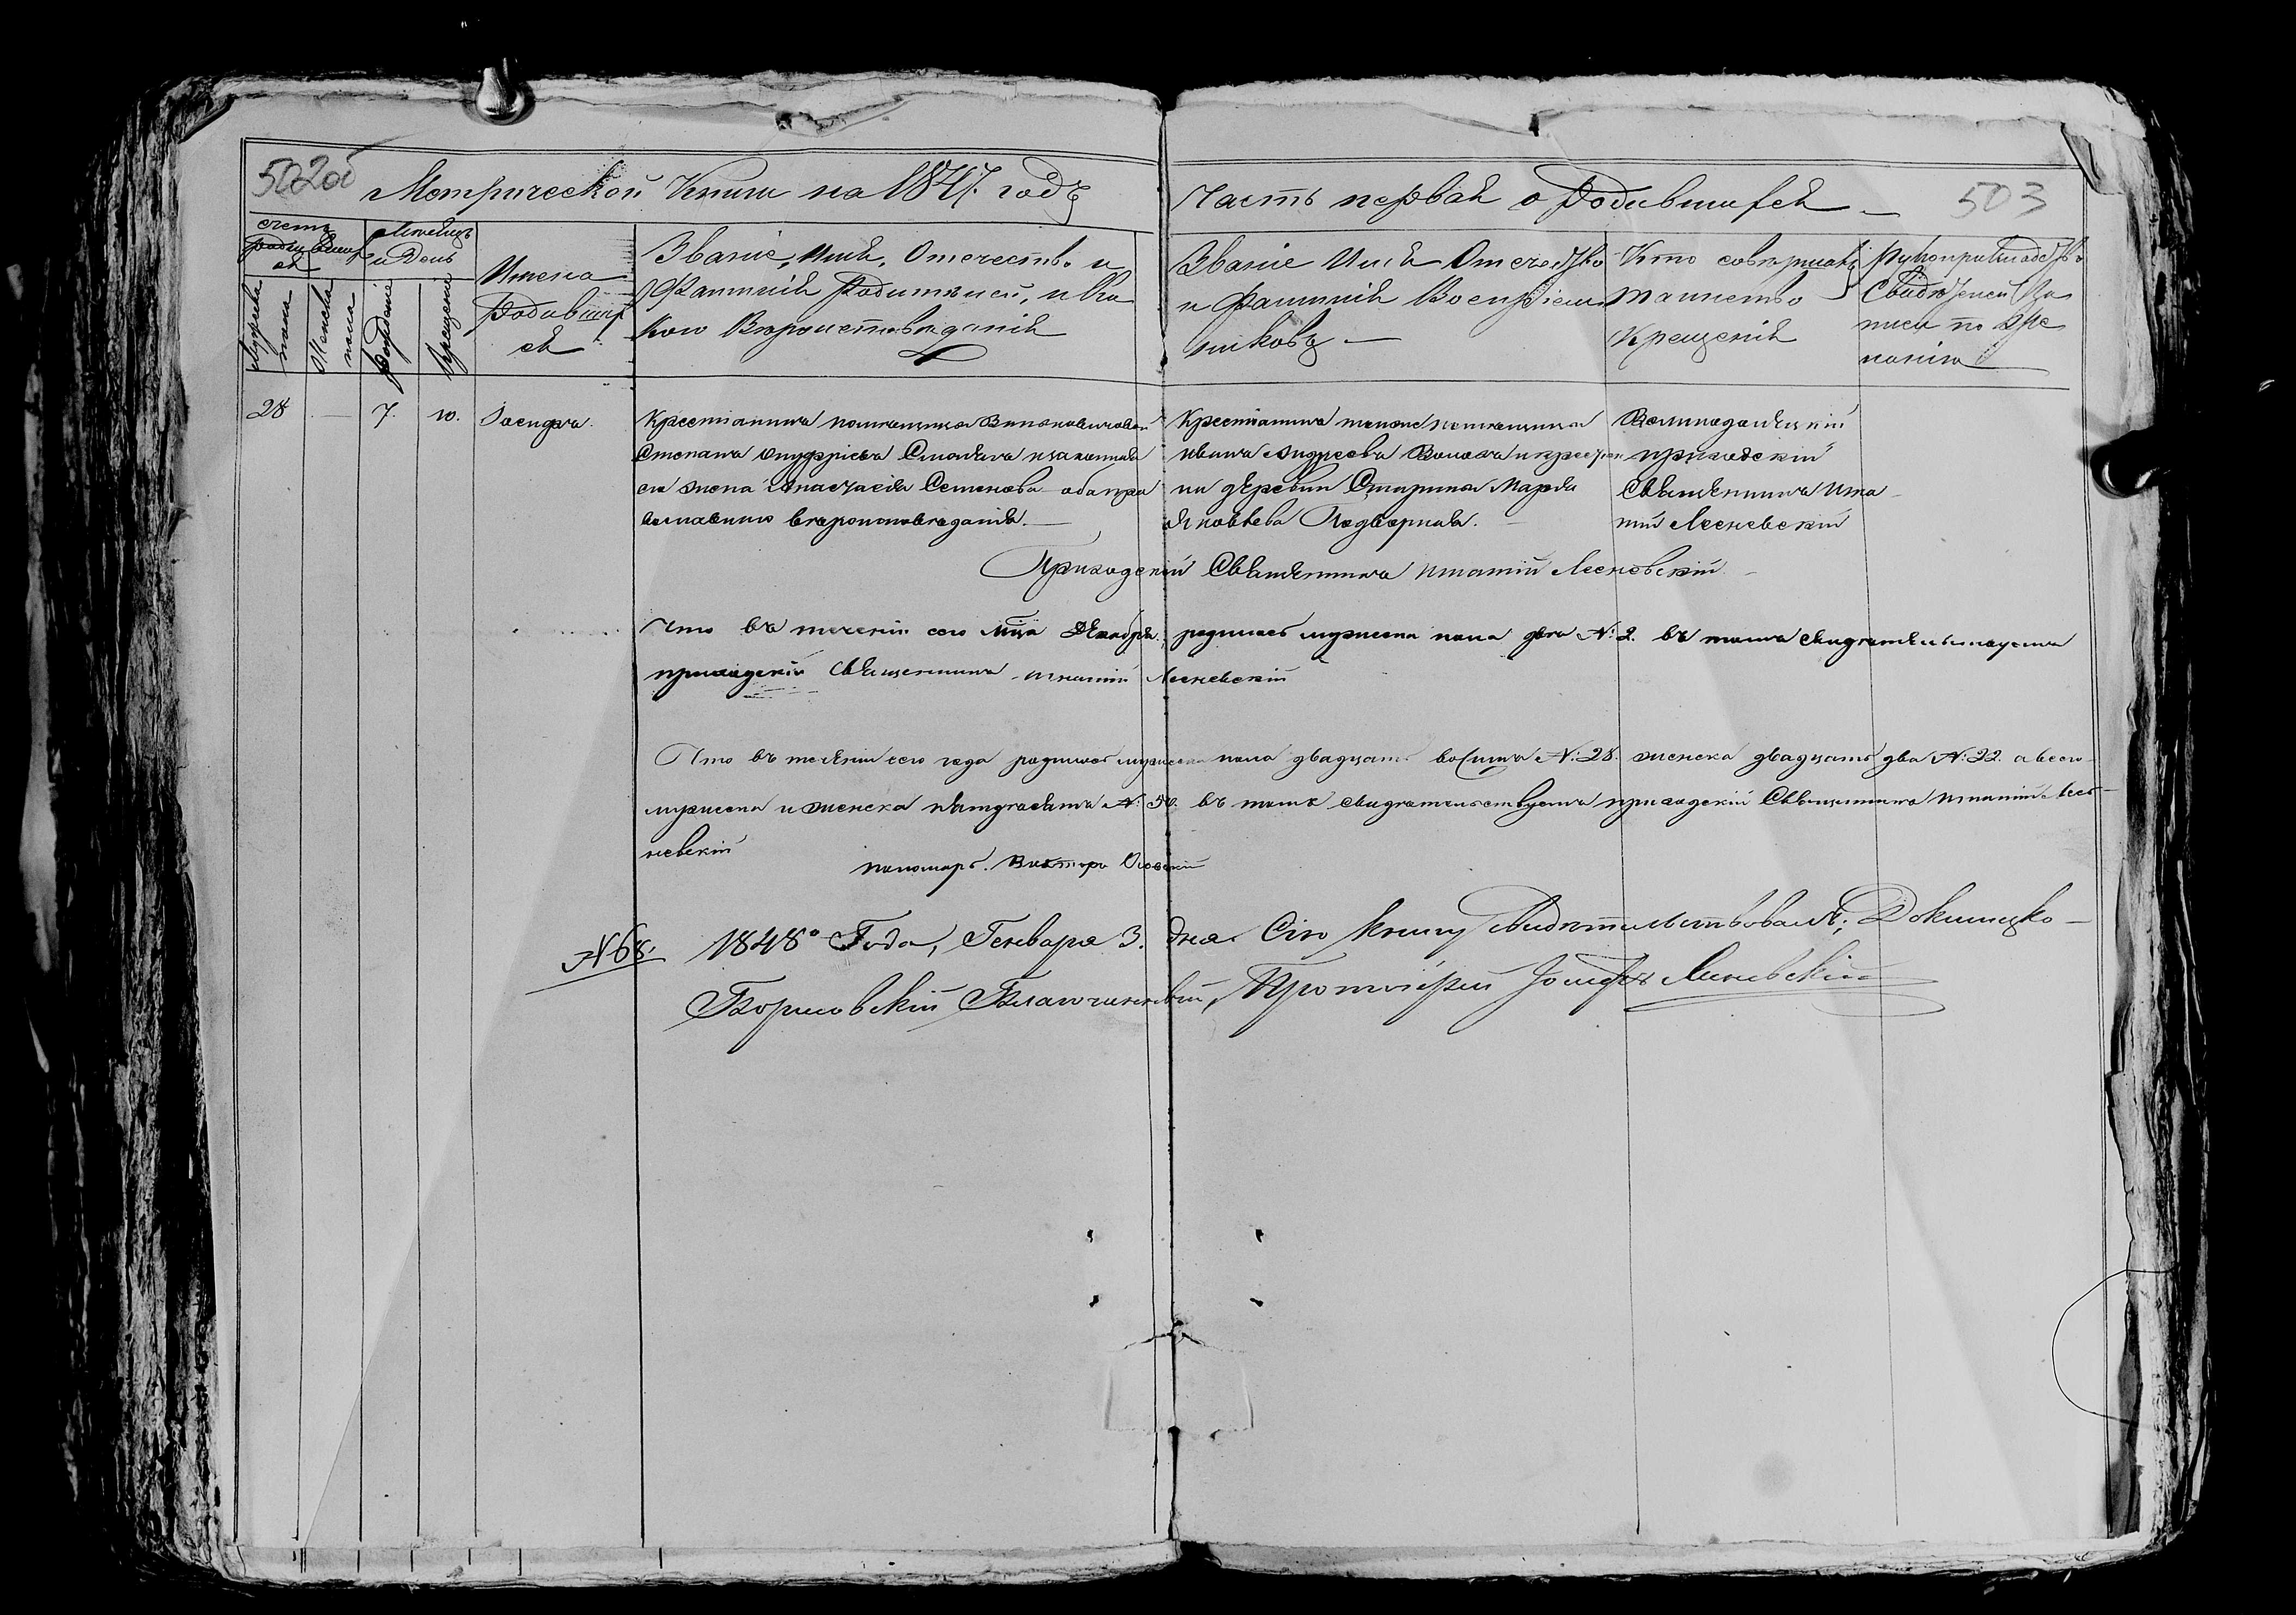 502об
Метрической Книги на 1847. годъ
Часть первая о Родившихся
503
счетъ Родившихся
Мужеска пола
Женска пола
Месяцъ и День
Рожденіе
Крещеніе
Имена Родившихся
Званіе, Имя, Отечество и
Фамилія Родителей, и Ка
кого Вероисповеданія
Званіе Имя Отечество
и Фамилія Воспріем
никовъ
Кто совершалъ
таинство
Крещенія
Рукоприкладство
Свидетелей За
писи по же
ланію
28
7.
10.
Іосифъ
Крестьянинъ помещицы
Степанъ Онуфріевъ и законная
его жена Анастасія Семенова оба пра
вославнаго вероисповеданія.
Крестьянинъ тойже помещицы
Иванъ Андреевъ и крестьян
ки деревни Марья
Яковлева
приходскій
Священникъ Игна
тій Лесневскій
Приходскій Священникъ Игнатій Лесневскій
Что въ теченіи сего мца Декабря родилось мужеска пола два №: 2. въ томъ свидетельствуетъ
приходскій Священникъ Игнатій Лесневскій
Что въ теченіи сего года родилось мужеска пола двадцать восимъ №: 28. женска двадцать два №: 22. а всего
мужеска и женска пятдесятъ №: 50. въ томъ свидетельствуетъ приходскій Священникъ Игнатій Лес-
невскій
пономарь Викторъ
№ 68.
1848о Года, Генваря 3. дня. Сію книгу Свидетельствовалъ; Докшицко-
Борисовскій Благочинный, Протоіерей Іосифъ